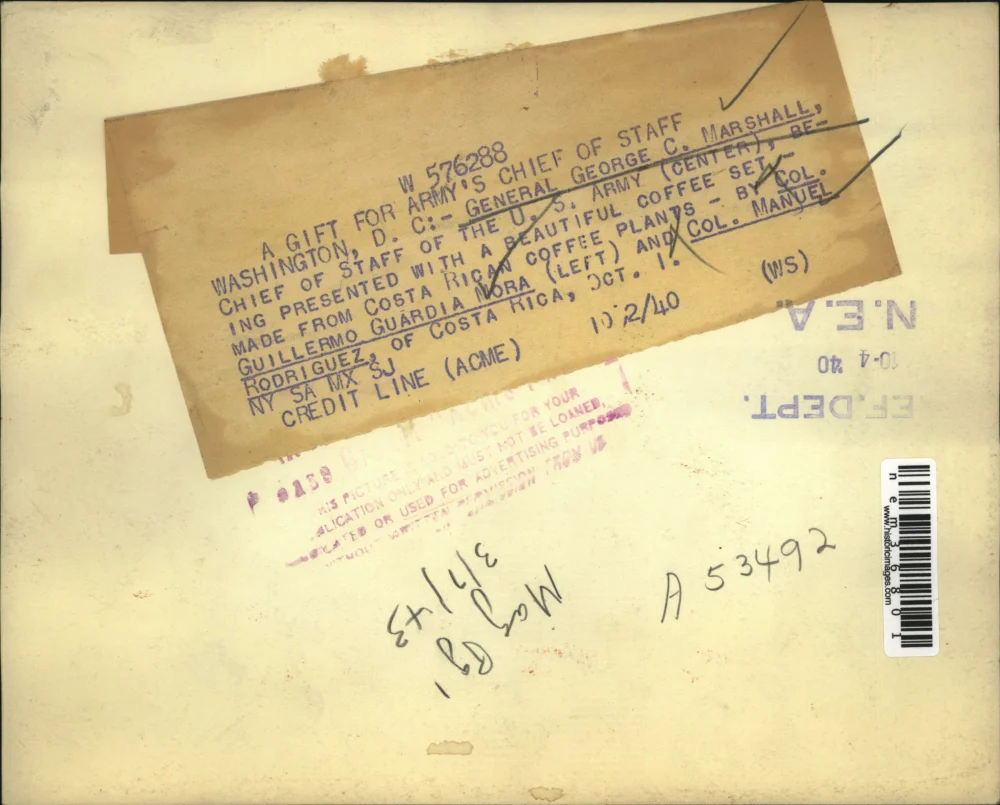 W 576288
A GIFT FOR ARMY'S CHIEF OF STAFF
WASHINGTON, D. C:- GENERAL GEORGE C. MARSHALL,
CHIEF OF STAFF OF THE U. S. ARMY (CENTER), BE-
ING PRESENTED WITH A BEAUTIFUL COFFEE SET -
MADE FROM COSTA RICAN COFFEE PLANTS - BY COL.
GUILLERMO GUARDIA MORA (LEFT) AND COL. MANUEL
RODRIGUEZ, OF COSTA RICA, OCT. 1.
NY SA MX SJ (WS)
CREDIT LINE (ACME) 10/2/40
N.E.A.
10-4 40
REF. DEPT.
THIS PICTURE FOR YOUR
PUBLICATION ONLY AND MUST NOT BE LOANED,
OR USED FOR ADVERTISING PURPOSES
WITHOUT WRITTEN PERMISSION FROM US
3/7/43
A 53492
nem36801
www.historicimages.com